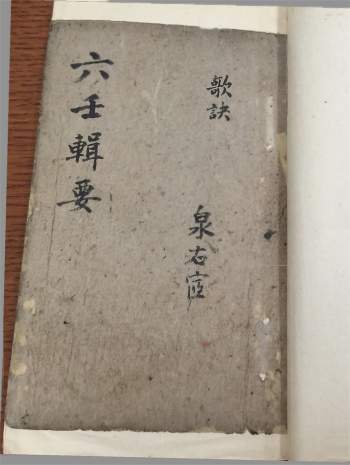 歌訣
泉右
六壬輯要